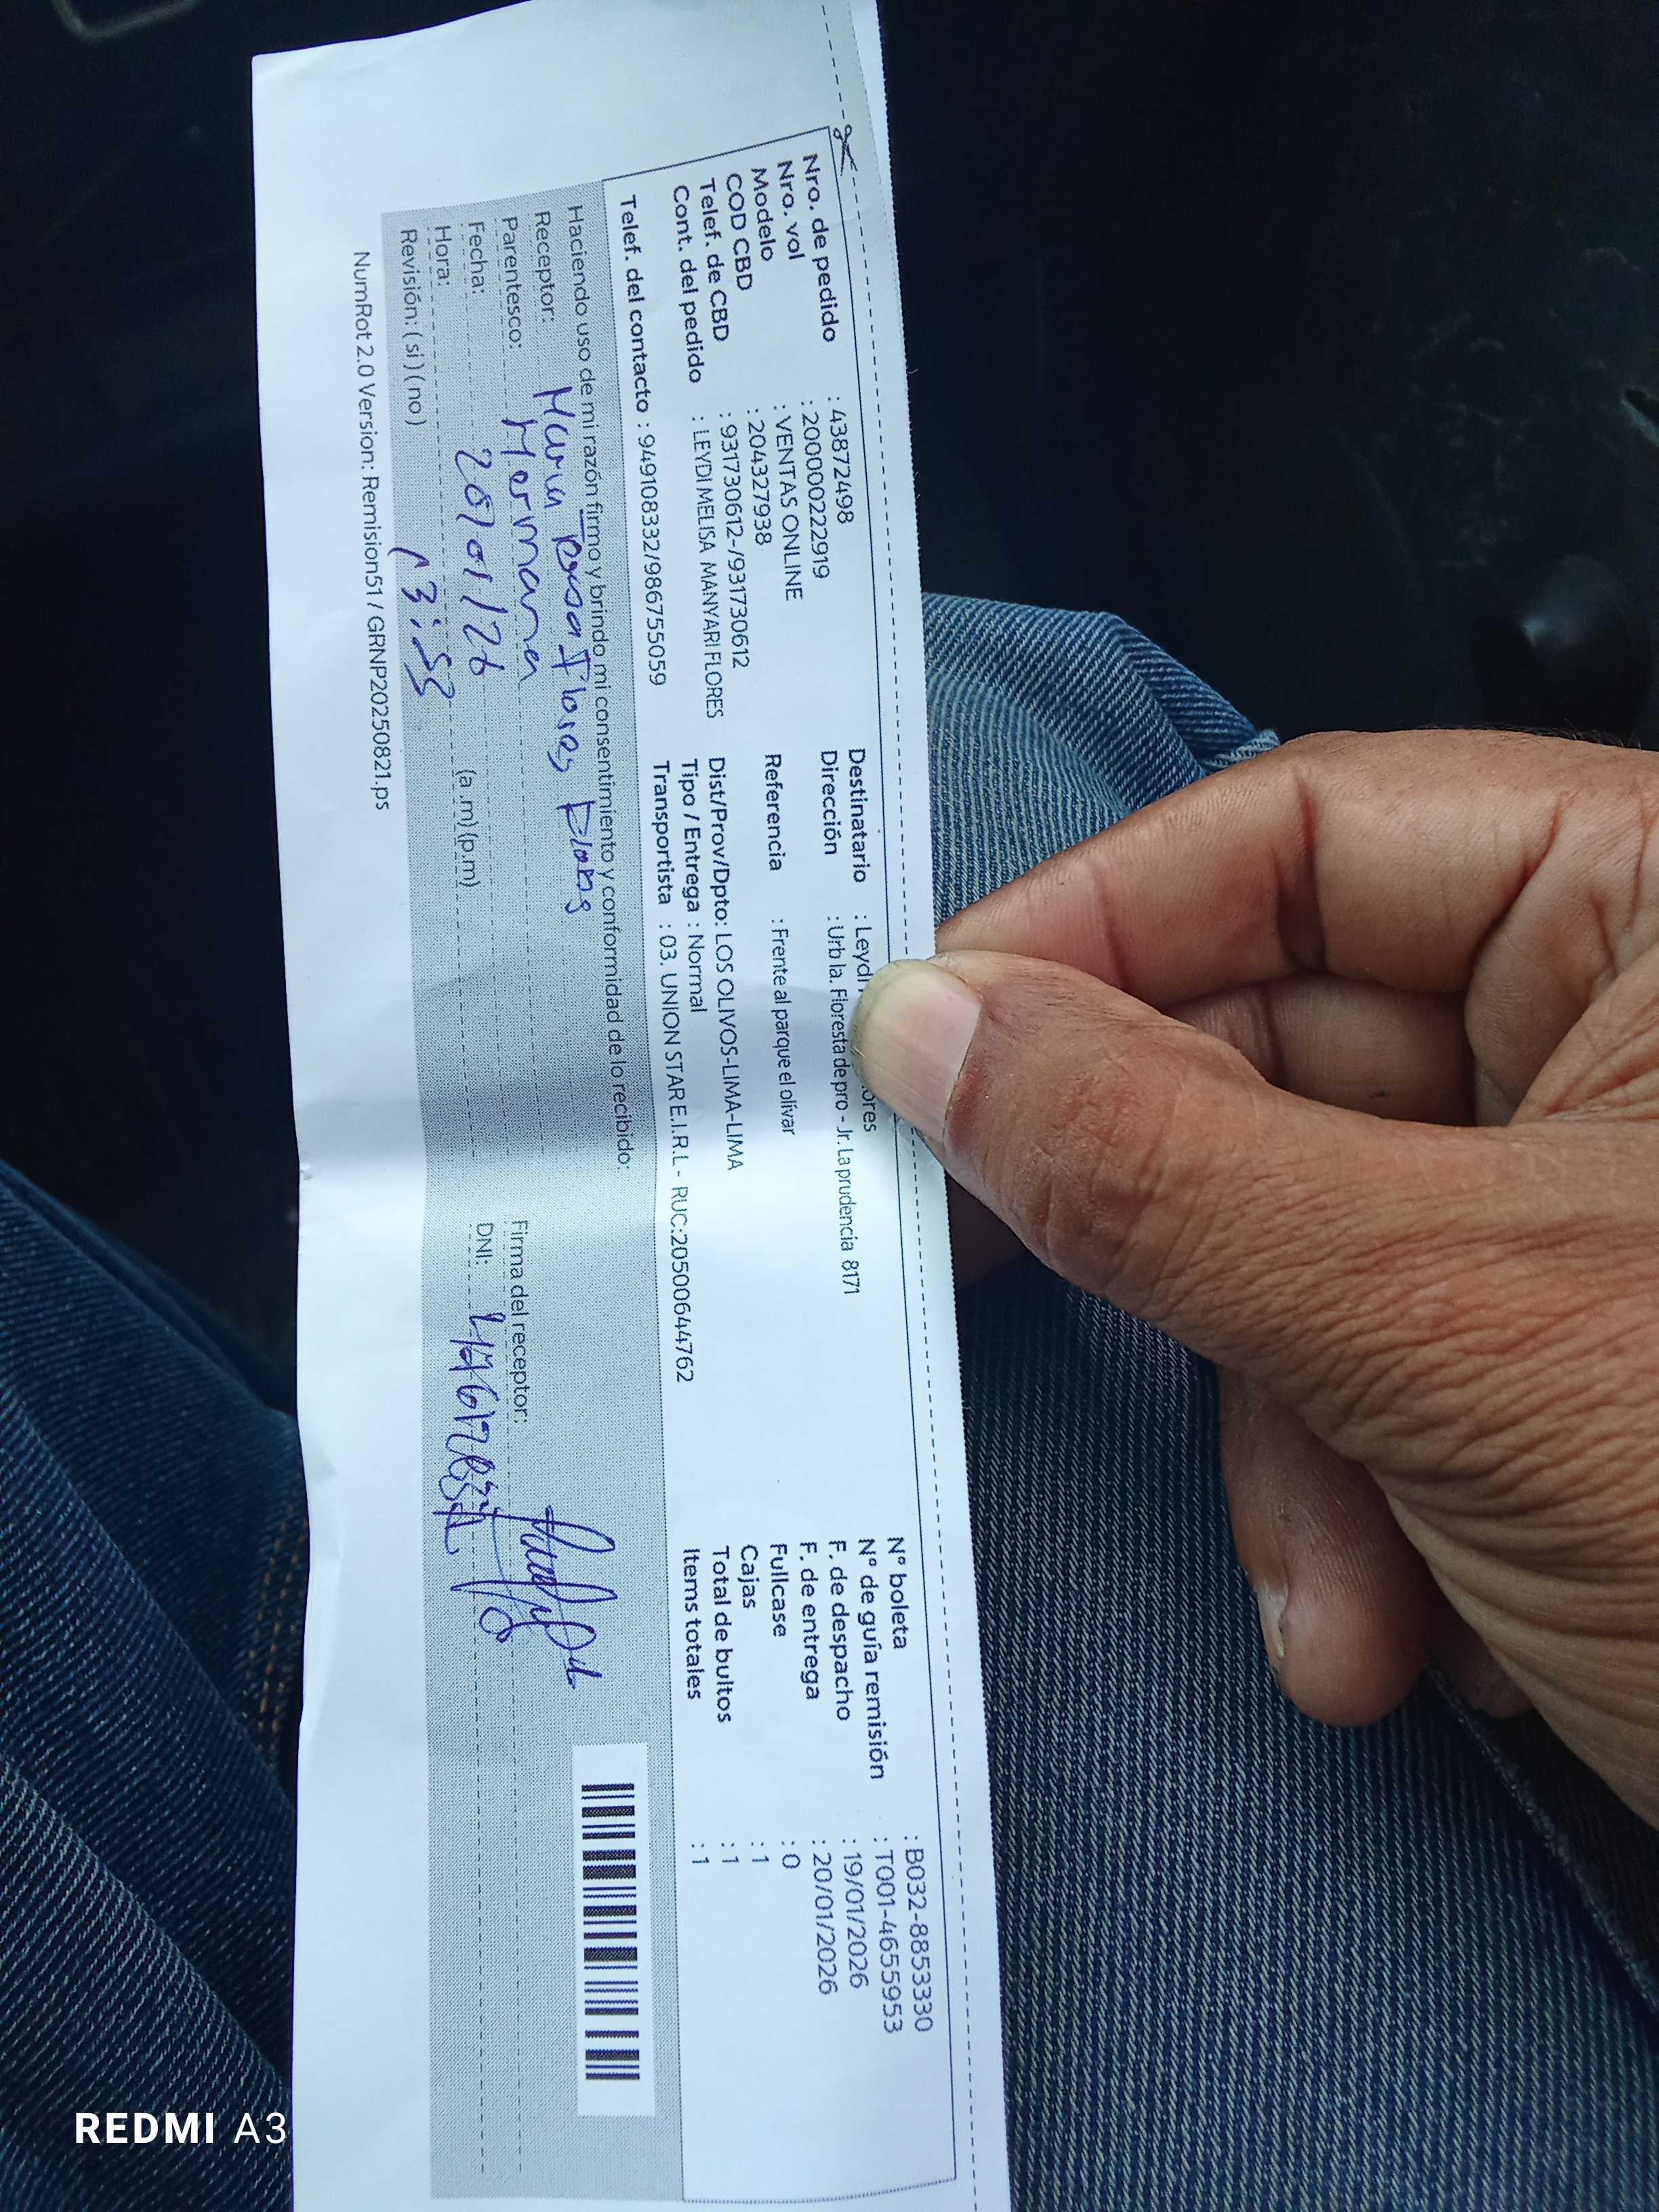 Nro. de pedido : 43872498
Nro. vol : 2000002222919
Modelo : VENTAS ONLINE
COD CBD : 204327938
Telef. de CBD : 931730612-/931730612
Cont. del pedido : LEYDI MELISA MANYARI FLORES
Telef. del contacto : 949108332/986755059
Destinatario : Leydi
Dirección : Urb la. Floresta de pro - Jr. La prudencia 8171
Referencia : Frente al parque el olivar
Dist/Prov/Dpto: LOS OLIVOS-LIMA-LIMA
Tipo / Entrega : Normal
Transportista : 03. UNION STAR E.I.R.L - RUC:20500644762
N° boleta : B032-8853330
N° de guía remisión : T001-4655953
F. de despacho : 19/01/2026
F. de entrega : 20/01/2026
Fullcase : 0
Cajas : 1
Total de bultos : 1
Items totales : 1
Haciendo uso de mi razón firmo y brindo mi consentimiento y conformidad de lo recibido:
Receptor: Maria Flores
Parentesco: Hermana
Fecha: 20/01/26
Hora: 13:55 (a.m) (p.m)
Revisión: ( si ) ( no )
Firma del receptor:
DNI:
NumRot 2.0 Version: Remision51 / GRNP20250821.ps
REDMI A3